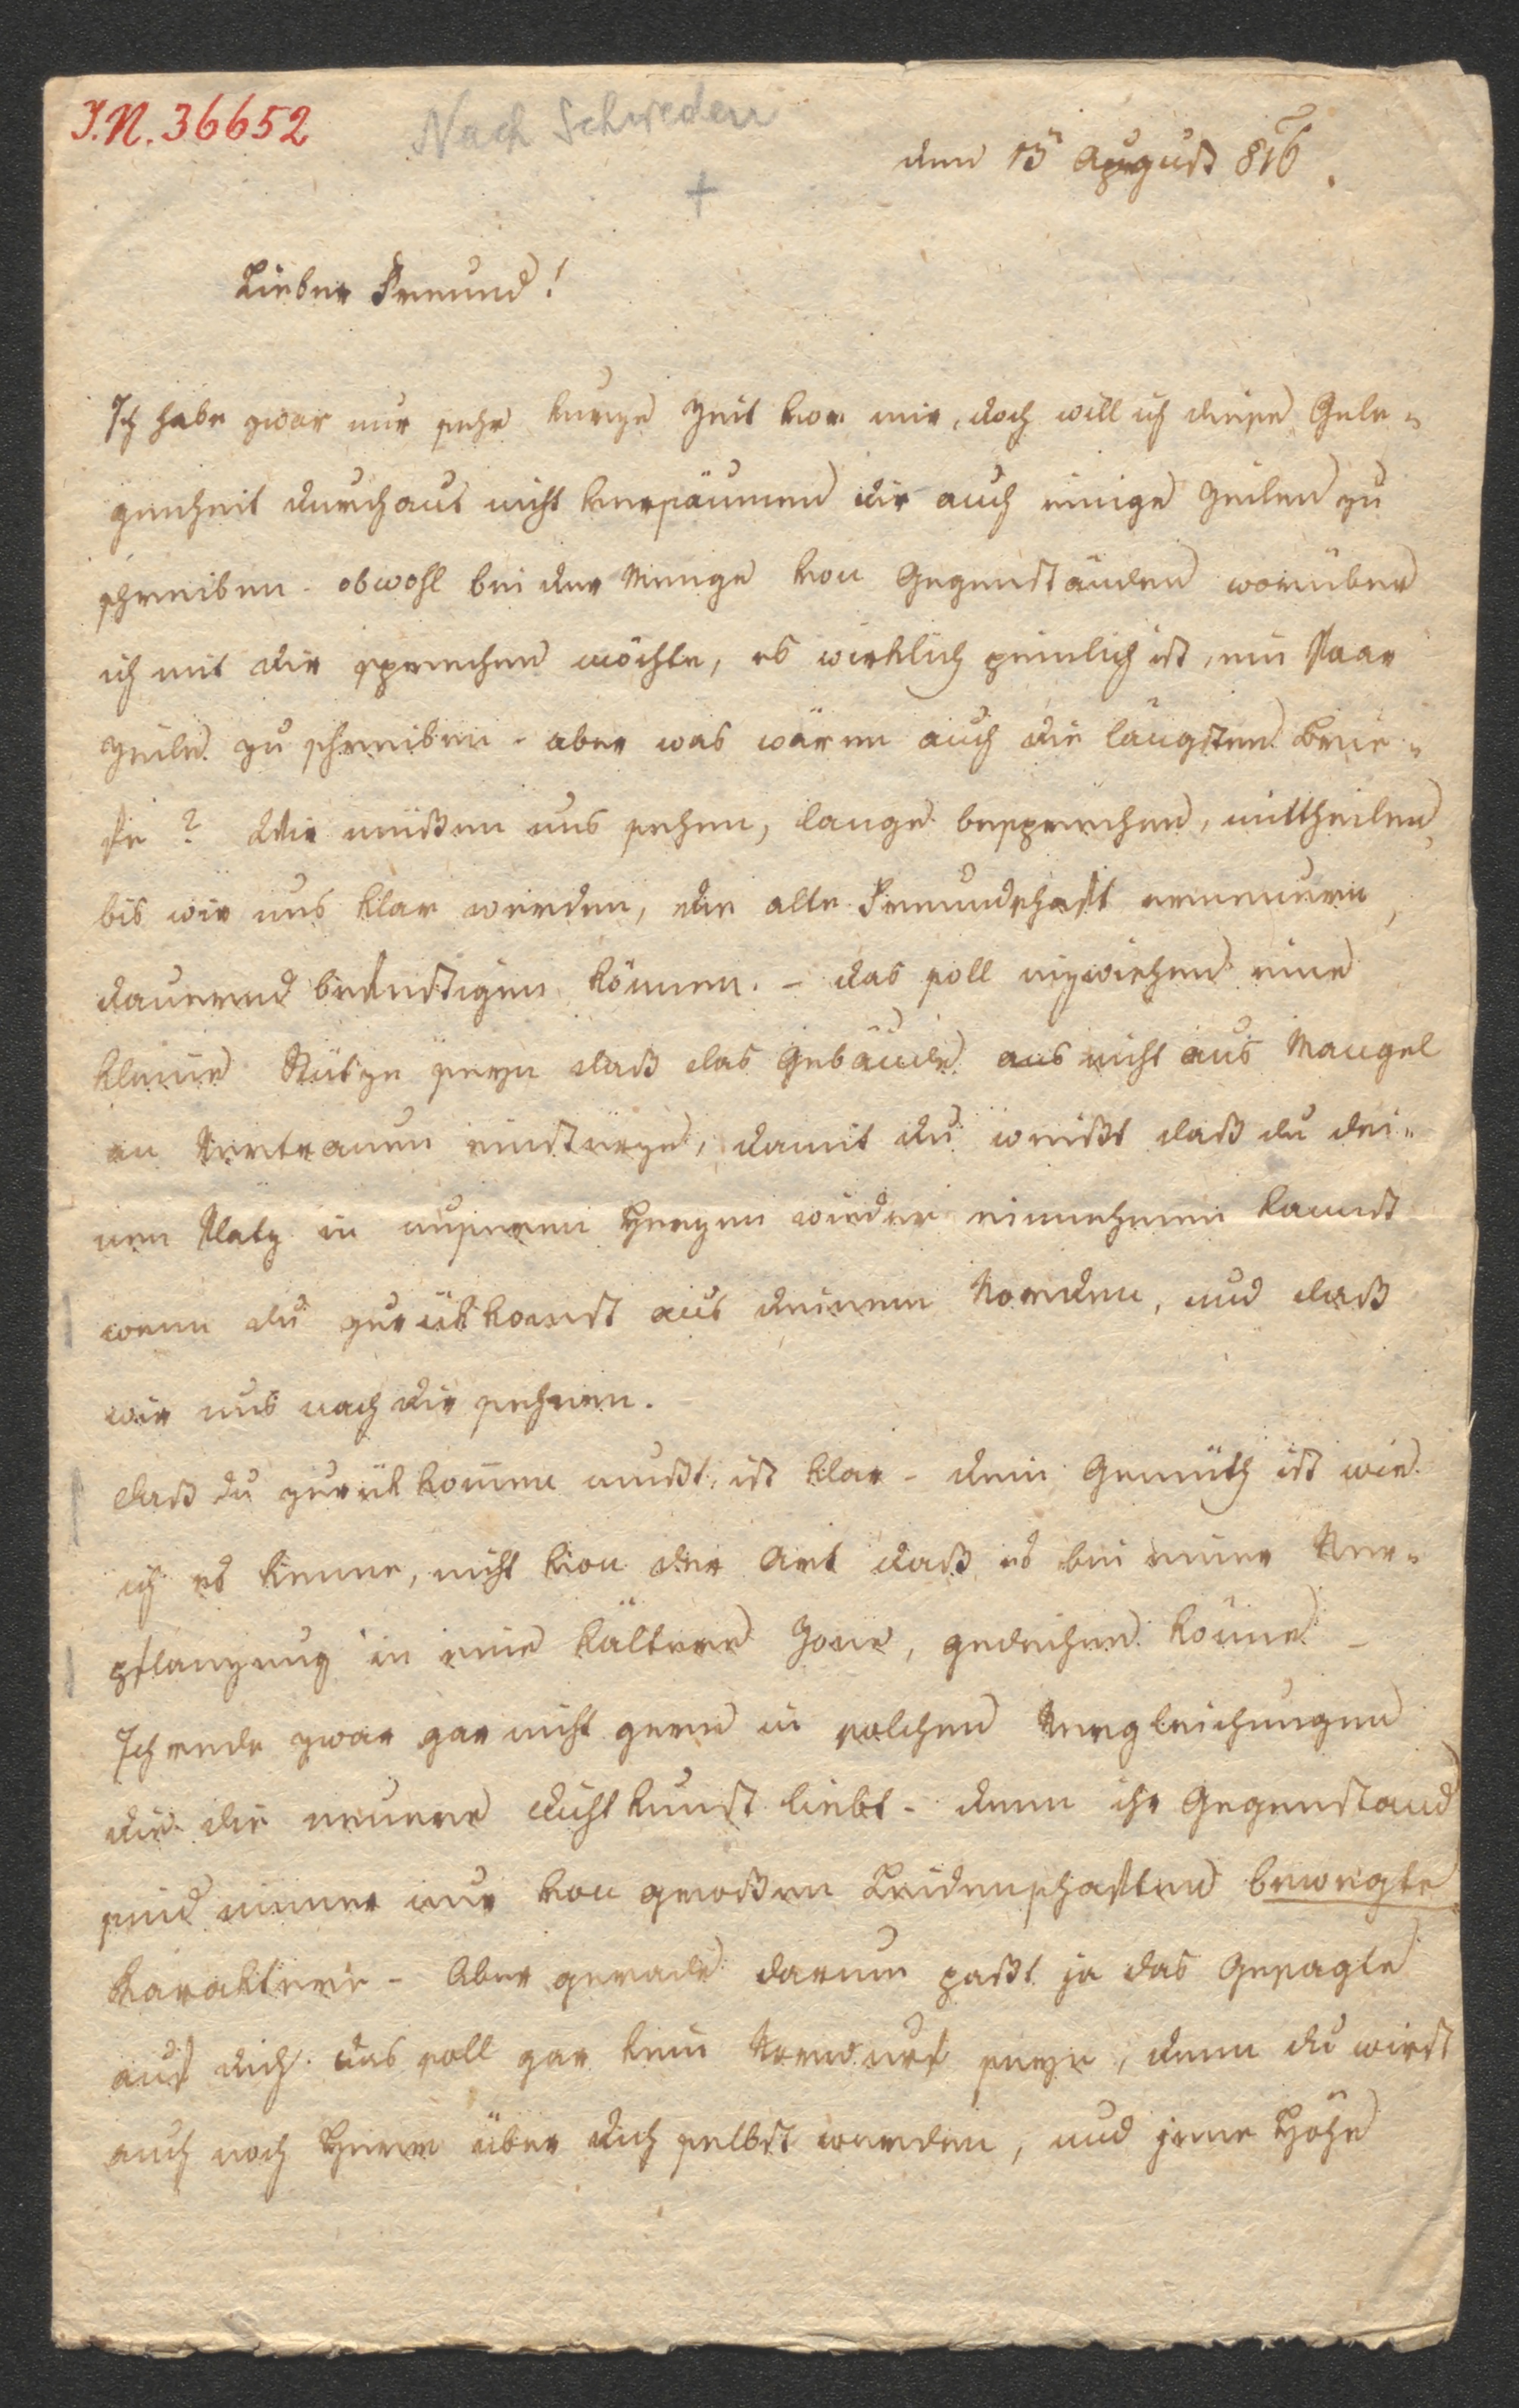 J.N. 36652
Nach Schweden
den 15 August 816.
+
Lieber Freund!
Ich habe zwar nur sehr kurze Zeit vor mir, doch will ich diese Gele-
genheit durchaus nicht versäumen dir auch einige Zeilen zu
schreiben - obwohl bei der Menge von Gegenständen worüber
ich mit dir sprechen möchte, es wirklich peinlich ist, ein Paar
Zeilen zu schreiben - aber was wären auch die längsten Brie-
fe? Wir müßen uns sehen, lange besprechen, mittheilen,
bis wir uns klar werden, die alte Freundschaft erneuern,
dauernd befestigen können. - das soll inzwischen eine
kleine Stütze seyn daß das Gebäude aus nicht aus Mangel
an Vertrauen einstürze, damit du weißt daß du dei-
nen Platz in unseren Herzen wieder einnehmen kannst
wenn du zurükkomst aus deinem Norden, und daß
wir uns nach dir sehnen.
daß du zurükkom̄en mußt, ist klar - dein Gemüth ist wie
ich es kenne, nicht von der Art daß es bei einer Ver-
pflanzung in eine kältere Zone, gedeihen könne -
Ich rede zwar gar nicht gerne in solchen Vergleichungen
die die neuere Dichtkunst liebt - denn ihr Gegenstand
sind immer nur von großen Leidenschaften bewegte
Karaktere - Aber gerade darum paßt ja das Gesagte
auf dich. das soll gar kein Vorwurf seyn, denn du wirst
auch noch Herr über dich selbst werden, und jene Höhe